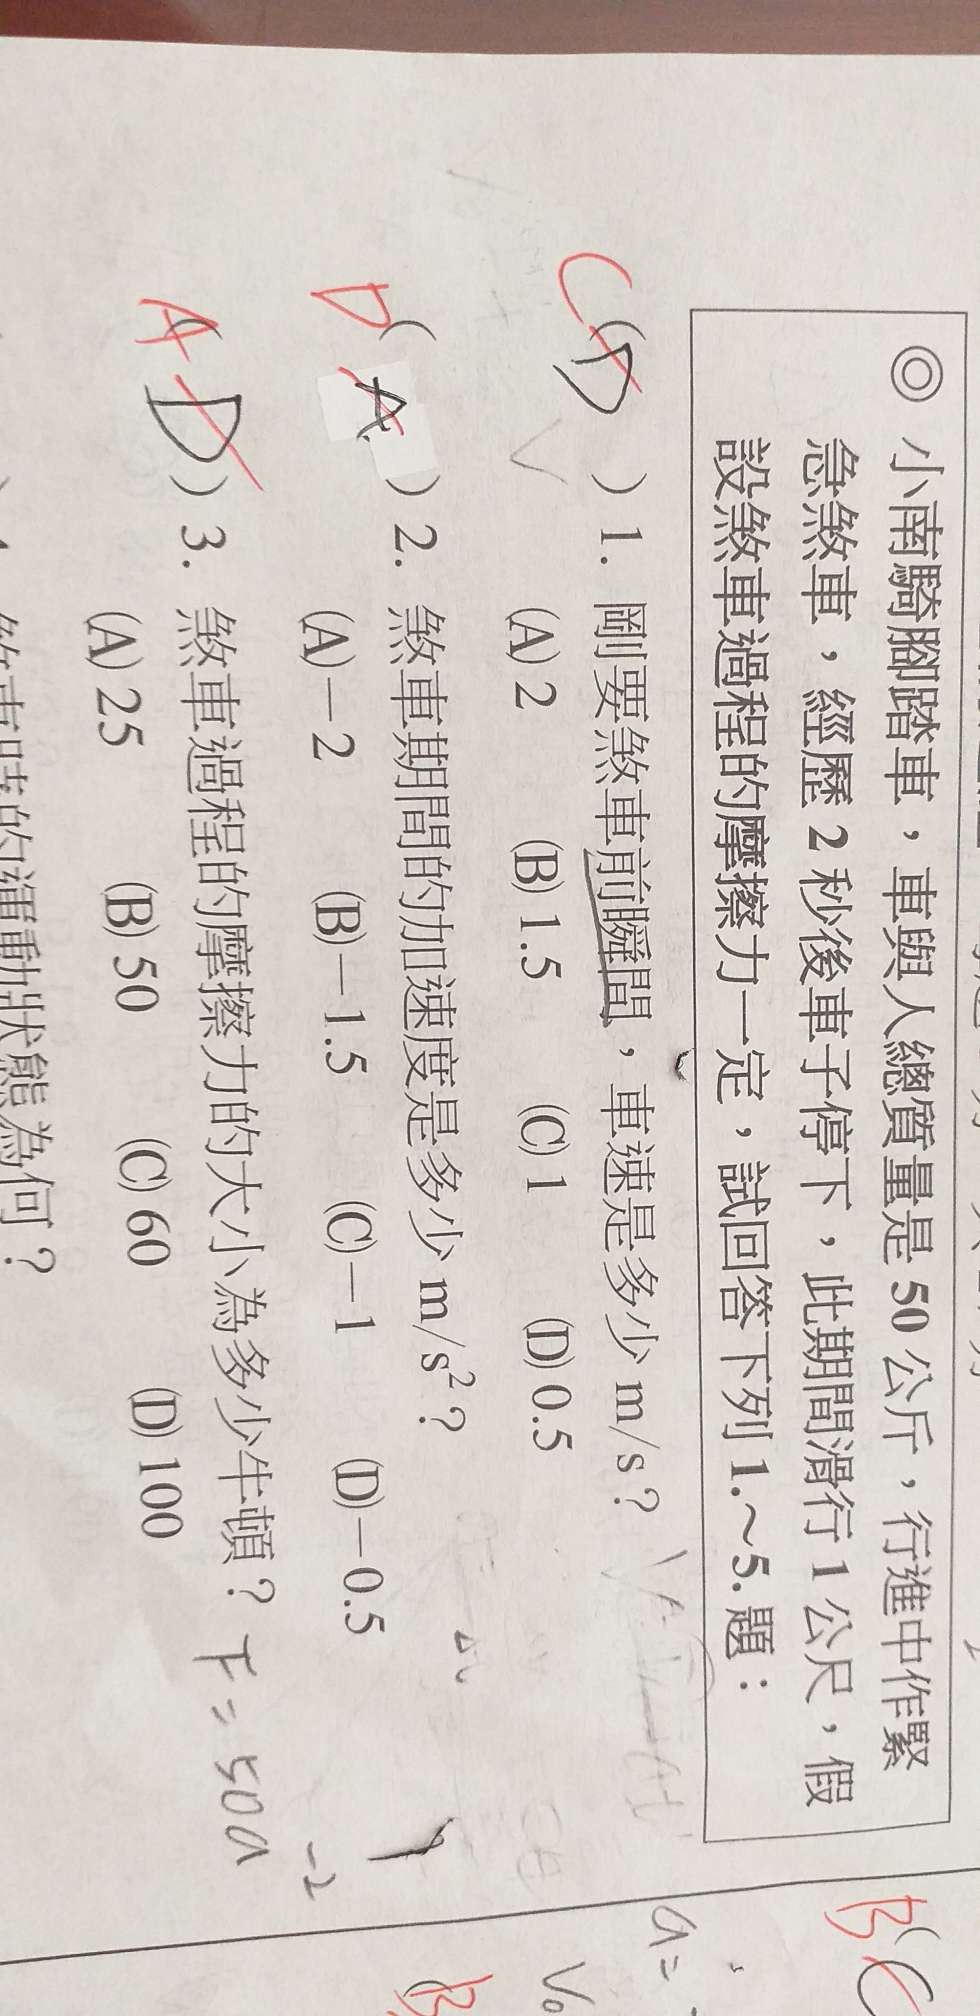 ◎ 小南騎腳踏車，車與人總質量是50公斤，行進中作緊
急煞車，經歷2秒後車子停下，此期間滑行1公尺，假
設煞車過程的摩擦力一定，試回答下列1.～5.題：
C(D) 1. 剛要煞車前瞬間，車速是多少m/s？
(A) 2 (B) 1.5 (C) 1 (D) 0.5
D(A) 2. 煞車期間的加速度是多少m/s²？
(A)－2 (B)－1.5 (C)－1 (D)－0.5
A(D) 3. 煞車過程的摩擦力的大小為多少牛頓？ F=50a
-2
(A) 25 (B) 50 (C) 60 (D) 100
煞車時的運動狀態為何？
B(C
a=
V₀
B